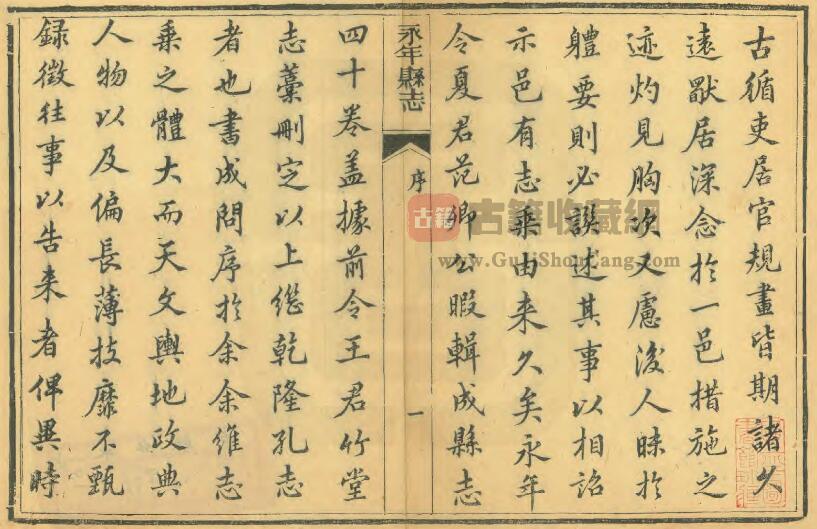 古循吏居官規畫皆期諸久
遠厭居深念於一邑措施之
迹灼見胸次又慮後人昧於
軆要則必譔述其事以相詔
示邑有志乘由来久矣永年
令夏君范卿公暇輯成縣志
永年縣志
序
一
四十卷盖據前令王君竹堂
志藁刪定以上繼乾隆孔志
者也書成問序於余余維志
乘之體大而天文輿地政典
人物以及偏長薄技靡不甄
録徵往事以告来者俾異時
古籍
古籍收藏網
www.GujiShouCang.com